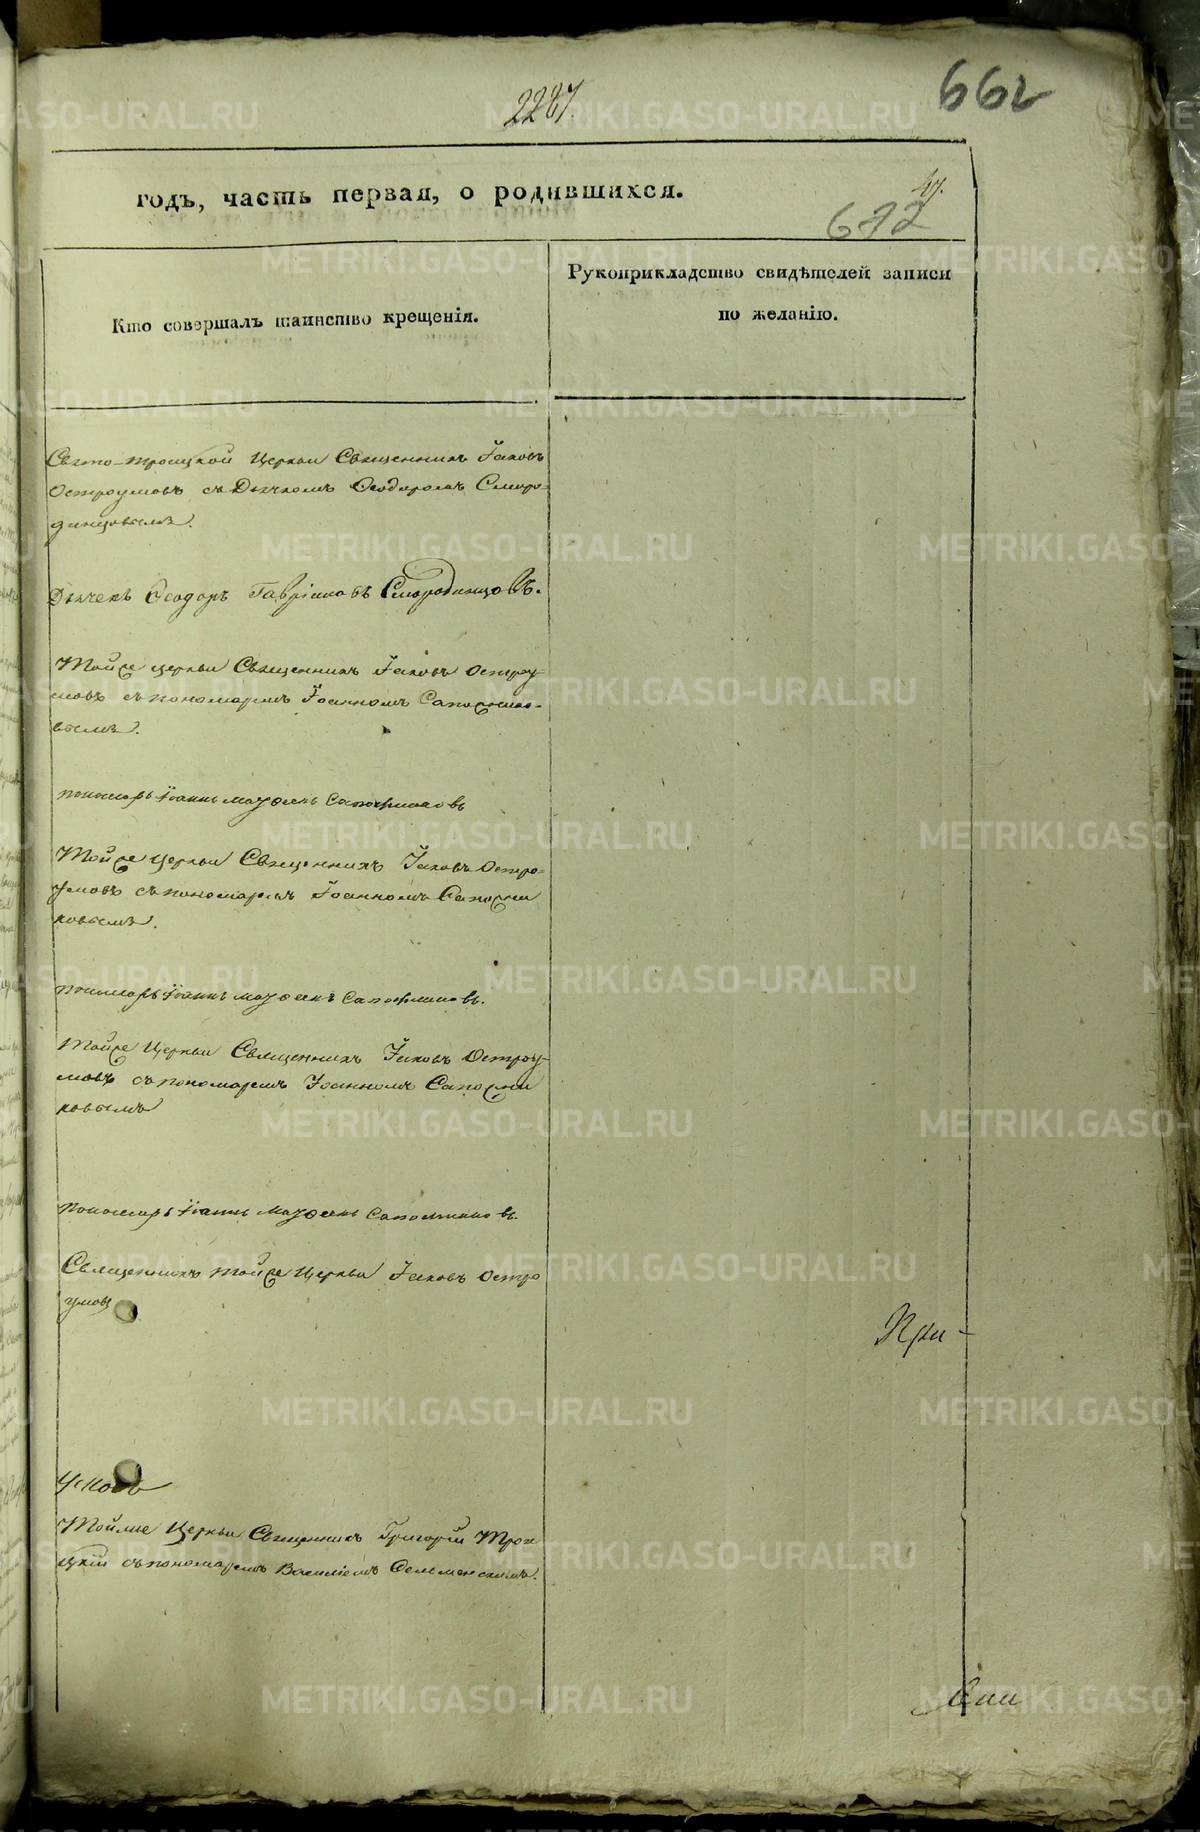 2287.
662
годъ, часть первая, о родившихся.
47.
672
Кто совершалъ таинство крещенія.
Рукоприкладство свидѣтелей записи
по желанію.
Свято-троицкой Церкви Священникъ Іаковъ
Остроумовъ съ Дьячкомъ Ѳеодоромъ Сморо-
динцовымъ.
Дьячекъ Ѳеодоръ Гавріиловъ Смородинцовъ.
Тойже церкви Священникъ Іаковъ Остроу-
мовъ съ пономаремъ Іоанномъ Сапожнико-
вымъ.
пономарь Іоаннъ Сапожниковъ
Тойже Церкви Священникъ Іаковъ Остро-
умовъ съ пономаремъ Іоанномъ Сапожни
ковымъ.
пономарь Іоаннъ Сапожниковъ.
Тойже Церкви Священникъ Іаковъ Остроу-
мовъ съ пономаремъ Іоанномъ Сапожни
ковымъ
пономарь Іоаннъ Сапожниковъ.
Священникъ тойже Церкви Іаковъ Остро
умовъ
При-
Тойже Церкви Священникъ Григорій Трои
цкій съ пономаремъ Василіемъ
METRIKI.GASO-URAL.RU